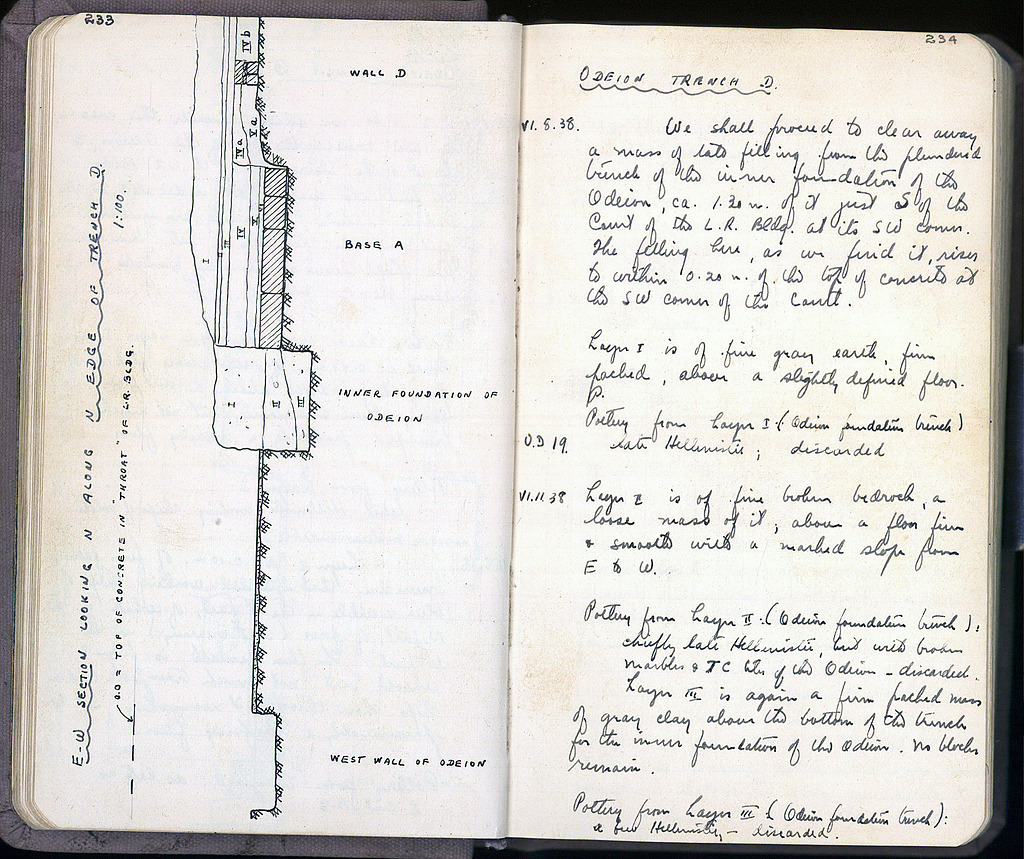 233
WALL D
BASE A
INNER FOUNDATION OF
ODEION
WEST WALL OF ODEION
E-W SECTION LOOKING N ALONG N EDGE OF TRENCH D.
1:100.
0.0 = TOP OF CONCRETE IN "THROAT" OF L.R. BLDG.
IV b
IV a
V a
I
II
III
IV
V
I
II
III
234
ODEION TRENCH D.
VI.8.38. We shall proceed to clear away
a mass of late filling from the plundered
trench of the inner foundation of the
Odeion, ca. 1.20 m. of it just S of the
Court of the L.R. Bldg. at its SW corner.
The filling here, as we find it, rises
to within 0.20 m. of the top of concrete at
the SW corner of the Court.
Layer I is of fine gray earth, firm
packed, above a slightly defined floor.
P.
Pottery from Layer I (Odeion foundation trench)
O.D 19. late Hellenistic; discarded
VI.11.38 Layer II is of fine broken bedrock, a
loose mass of it, above a floor firm
& smooth with a marked slope from
E to W.
Pottery from Layer II (Odeion foundation trench):
chiefly late Hellenistic, but with broken
marbles & TC tiles of the Odeion - discarded.
Layer III is again a firm packed mass
of gray clay above the bottom of the trench
for the inner foundation of the Odeion. No blocks
remain.
Pottery from Layer III (Odeion foundation trench):
a few Hellenistic - discarded.